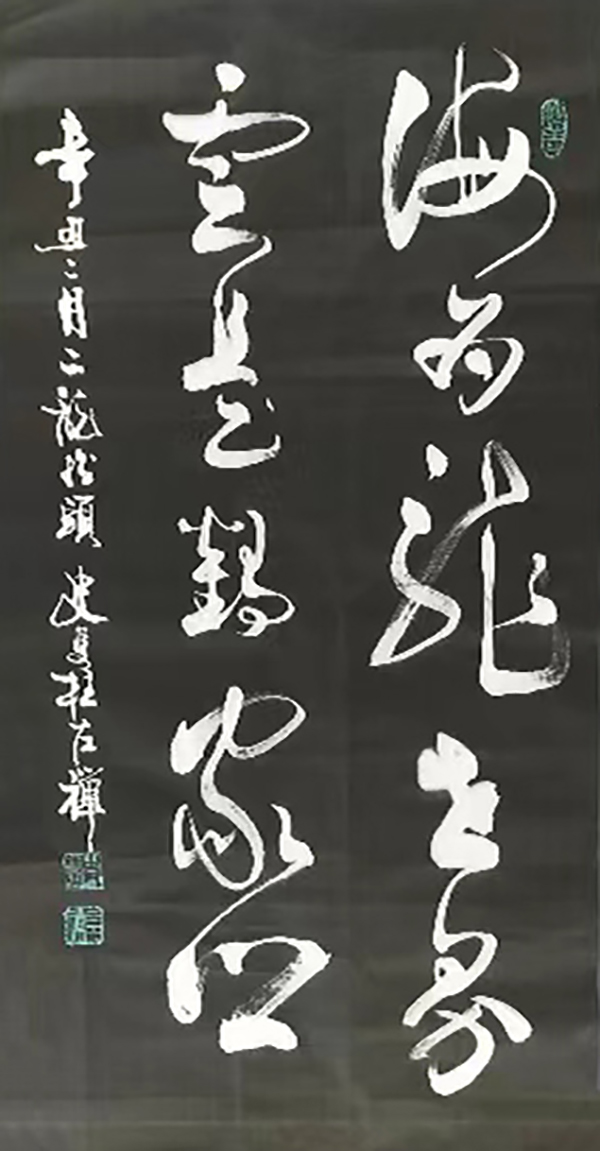 海為龍世界
雲是鶴家鄉
辛丑二月二龍抬頭 史